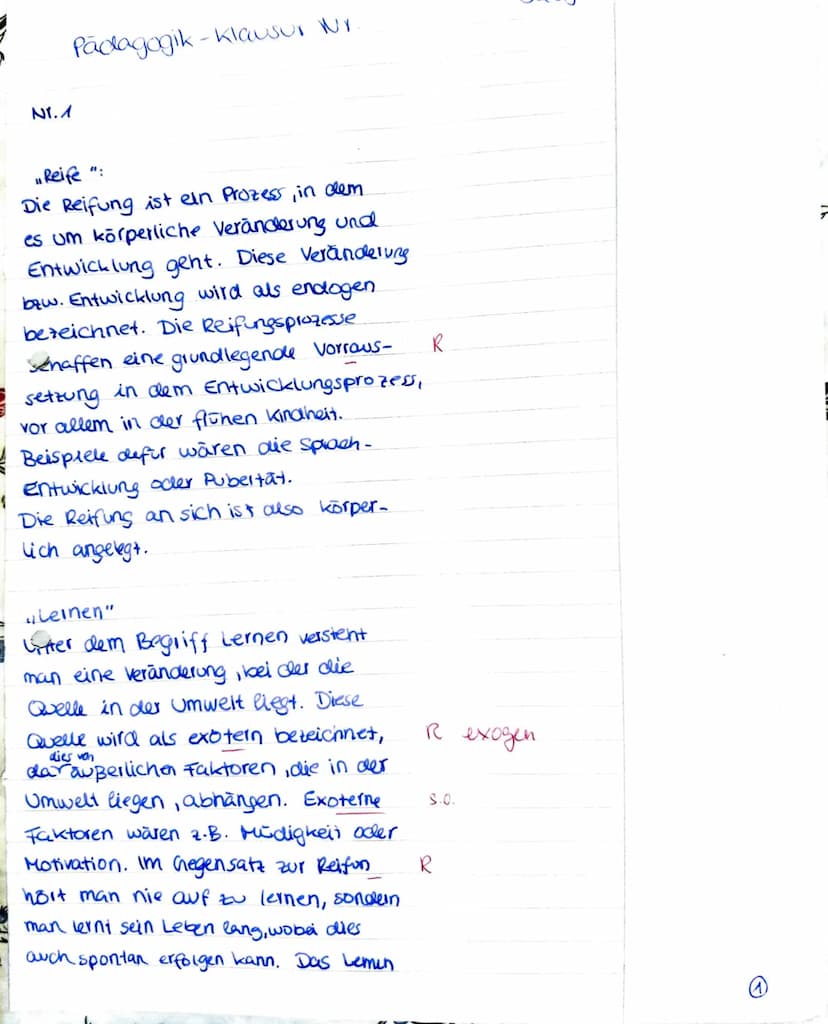 Pädagogik-Klausur Nr.
Nr. 1
„Reife":
Die Reifung ist ein Prozess, in dem
es um körperliche Veränderung und
Entwicklung geht. Diese Veränderung
bzw. Entwicklung wird als endogen
bezeichnet. Die Reifungsprozesse
schaffen eine grundlegende Vorraus- R
setzung in dem Entwicklungsprozess,
vor allem in der frühen Kindheit.
Beispiele dafür wären die Sprach-
Entwicklung oder Pubertät.
Die Reifung an sich ist also körper-
lich angelegt.
„Lernen"
Unter dem Begriff Lernen versteht
man eine Veränderung, bei der die
Quelle in der Umwelt liegt. Diese
Quelle wird als exotern bezeichnet, R exogen
dies von
da äußerlichen Faktoren, die in der
Umwelt liegen, abhängen. Exoterne s.o.
Faktoren wären z.B. Müdigkeit oder
Motivation. Im Gegensatz zur Reifun R
hört man nie auf zu lernen, sondern
man lernt sein Leben lang, wobei dies
auch spontan erfolgen kann. Das Lernen
1